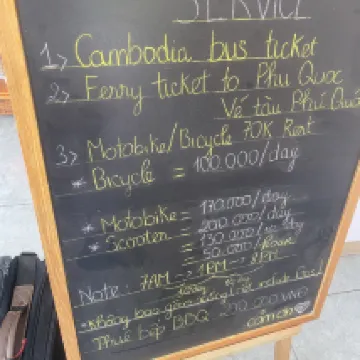 SERVICE
1> Cambodia bus ticket
2> Ferry ticket to Phu Quoc
Vé tàu Phú Quốc
3> Motobike/Bicycle Rent
* Bicycle = 100.000/day
* Motobike = 170.000/day
* Scooter = 200.000/day
= 130.000/
= 50.000/hour
Note: 7AM → 1PM → 8PM
* Không bao gồm
Thuê bếp BBQ 200.000 VND
cảm ơn